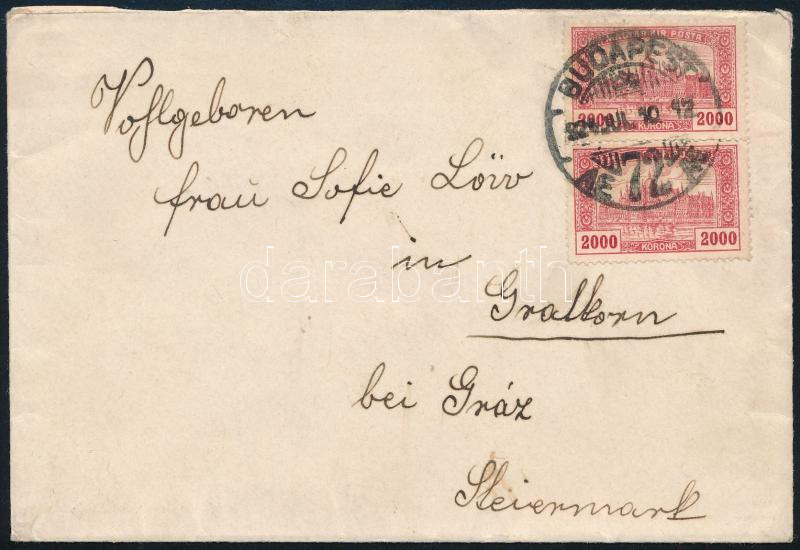 Vohlgeboren
frau Sofie Löw
in
Gratkorn
bei Gráz
Steiermark
MAGYAR KIR. POSTA
2000 KORONA 2000
2000 KORONA 2000
BUDAPEST
924 JUL 10 12
72
darabanth